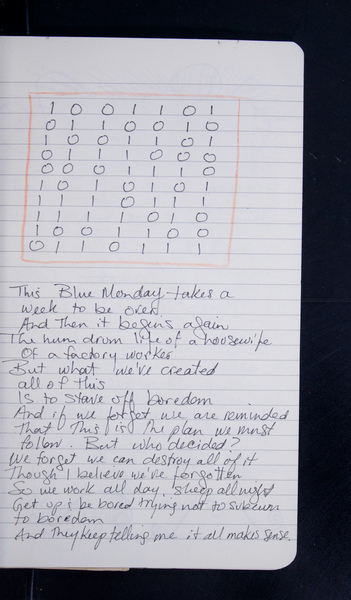 1 0 0 1 1 0 1
0 1 1 0 0 1 0
1 0 0 1 1 0 1
0 1 1 1 0 0 0
0 0 0 1 1 1 0
1 0 1 0 1 0 1
1 1 1 0 1 1 1
1 1 1 1 0 1 0
1 0 0 1 1 0 0
0 1 1 0 1 1 1
This Blue Monday takes a
week to be over.
And Then it begins again
The hum drum life of a housewife
Of a factory worker
But what we've created
all of this
Is to stave off boredom
And if we forget, we are reminded
That This is The plan we must
follow. But who decided?
We forget we can destroy all of it
Though I believe we've forgotten
So we work all day, sleep all night
Get up & be bored trying not to
to boredom
And They keep telling me it all makes sense.